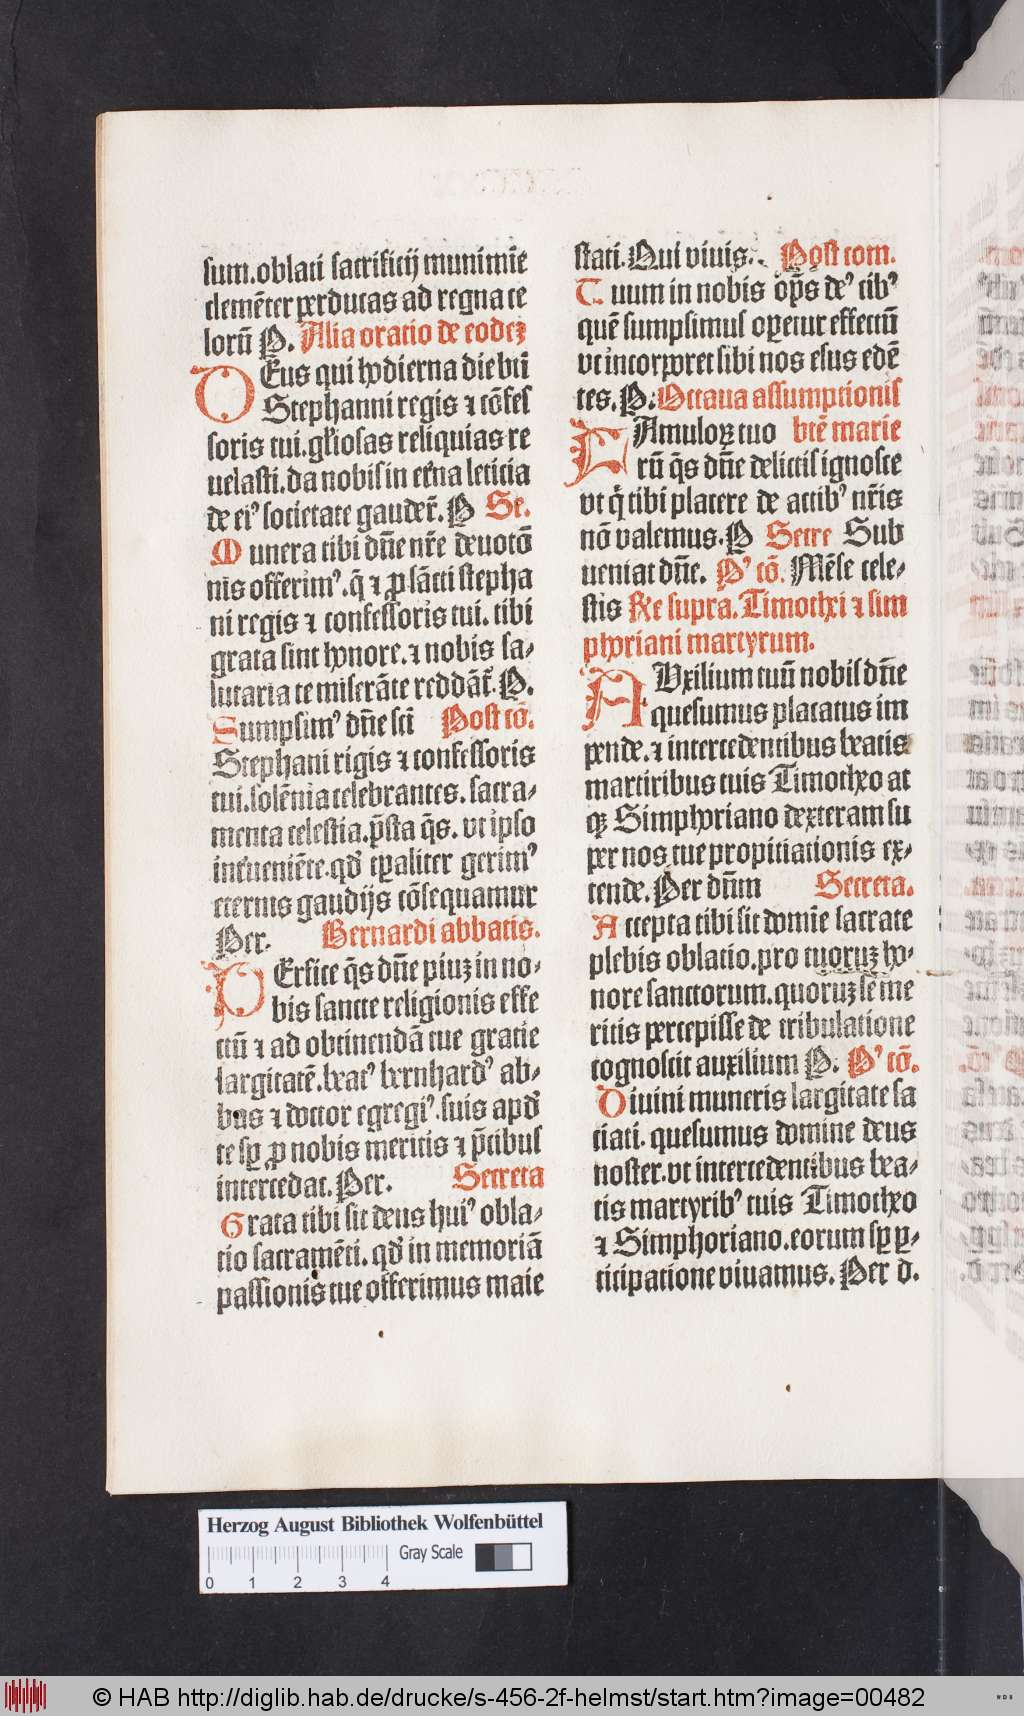 sum. oblati sacrificij munimīe
clemēter perducas ad regna ce
lorū P. Alia oratio de eodeꝫ
DEus qui hodierna die bti
Stephanni regis ⁊ cōfes
soris tui. gliosas reliquias re
uelasti. da nobis in etna leticia
de eiꝰ societate gauder̄. P Se.
Munera tibi dn̄e nr̄e deuotō
nis offerimꝰ. q̄ ⁊ ꝓ sācti stepha
ni regis ⁊ confessoris tui. tibi
grata sint honore. ⁊ nobis sa⸗
lutaria te miserāte reddāt̄. P.
Sumpsimꝰ dn̄e sci Post cō.
Stephani rigis ⁊ confessoris
tui. solēnia celebrantes. sacra⸗
menta celestia. p̄sta q̄s. vt ipso
inueniēte. qd̓ tꝑaliter gerimꝰ
eternis gaudijs cōsequamur
Per. Bernardi abbatis.
PErfice q̄s dn̄e piuꝫ in no⸗
bis sancte religionis effe
ctū ⁊ ad obtinendā tue gratie
largitatē. beatꝰ bernhardꝰ ab⸗
bas ⁊ doctor egregiꝰ. suis apd̓
te sꝑ ꝓ nobis meritis ⁊ p̄cibus
intercedat. Per. Secreta
Grata tibi sit deus huiꝰ obla⸗
tio sacramēti. qd̓ in memoriā
passionis tue offerimus maie
stati. Qui viuis. Post com.
Tuum in nobis op̄s deꝰ cibꝰ
quē sumpsimus operetur effectū
vt incorporet sibi nos esus edē
tes. P. Octaua assumptionis
FAmuloꝝ tuo btē marie
rū q̄s dn̄e delictis ignosce
vt q̓ tibi placere de actibꝰ nr̄is
nō valemus. P Secre Sub
ueniat dn̄e. Pꝰ cō. Mēse cele⸗
stis Re supra. Timothei ⁊ sim
phoriani martyrum.
AUxilium tuū nobis dn̄e
quesumus placatus im
pende. ⁊ intercedentibus beatis
martiribus tuis Timotheo at
qꝫ Simphoriano dexteram su
per nos tue propitiationis ex⸗
tende. Per dn̄m Secreta.
Accepta tibi sit domīe sacrate
plebis oblatio. pro tuoruꝫ ho⸗
nore sanctorum. quoruꝫ se me
ritis percepisse de tribulatione
cognoscit auxilium P. Pꝰ cō.
Diuini muneris largitate sa
ciati. quesumus domine deus
noster. vt intercedentibus bea⸗
tis martyribꝰ tuis Timotheo
⁊ Simphoriano. eorum sꝑ ꝑ⸗
ticipatione viuamus. Per d.
Herzog August Bibliothek Wolfenbüttel
Gray Scale
0 1 2 3 4
© HAB http://diglib.hab.de/drucke/s-456-2f-helmst/start.htm?image=00482